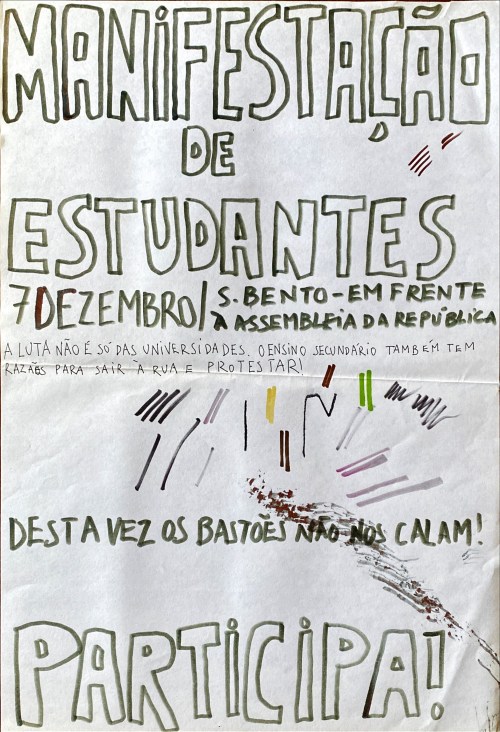 MANIFESTAÇÃO
DE
ESTUDANTES
7 DEZEMBRO/ S. BENTO - EM FRENTE
À ASSEMBLEIA DA REPÚBLICA
A LUTA NÃO É SÓ DAS UNIVERSIDADES. O ENSINO SECUNDÁRIO TAMBÉM TEM
RAZÃES PARA SAIR À RUA E PROTESTAR!
DESTA VEZ OS BASTÕES NÃO NOS CALAM!
PARTICIPA!